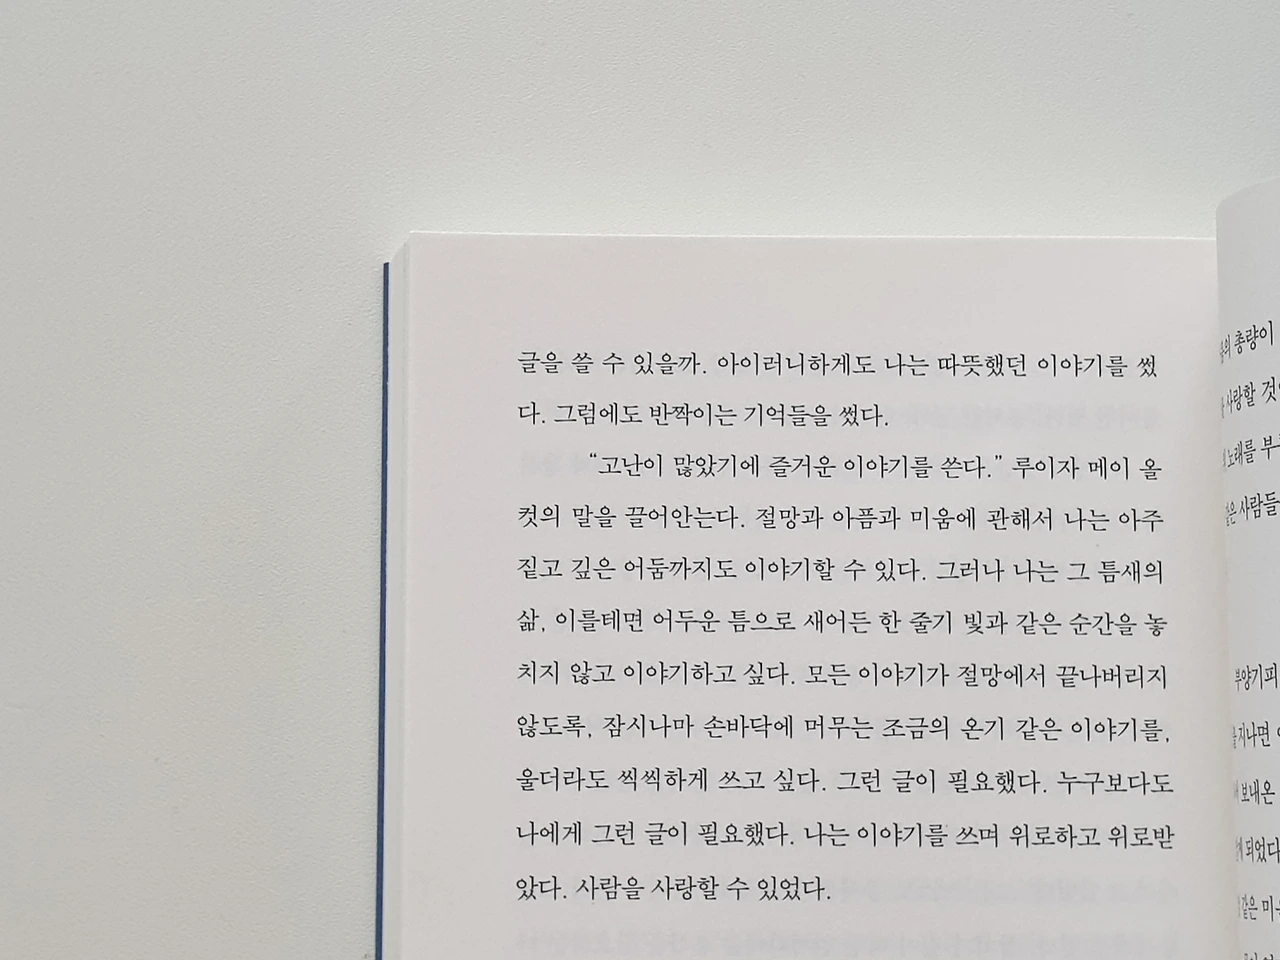 글을 쓸 수 있을까. 아이러니하게도 나는 따뜻했던 이야기를 썼
다. 그럼에도 반짝이는 기억들을 썼다.
“고난이 많았기에 즐거운 이야기를 쓴다.” 루이자 메이 올
컷의 말을 끌어안는다. 절망과 아픔과 미움에 관해서 나는 아주
짙고 깊은 어둠까지도 이야기할 수 있다. 그러나 나는 그 틈새의
삶, 이를테면 어두운 틈으로 새어든 한 줄기 빛과 같은 순간을 놓
치지 않고 이야기하고 싶다. 모든 이야기가 절망에서 끝나버리지
않도록, 잠시나마 손바닥에 머무는 조금의 온기 같은 이야기를,
울더라도 씩씩하게 쓰고 싶다. 그런 글이 필요했다. 누구보다도
나에게 그런 글이 필요했다. 나는 이야기를 쓰며 위로하고 위로받
았다. 사람을 사랑할 수 있었다.
총량이
사랑할
노래를
사람들
부양기피
보내온
되었다
같은